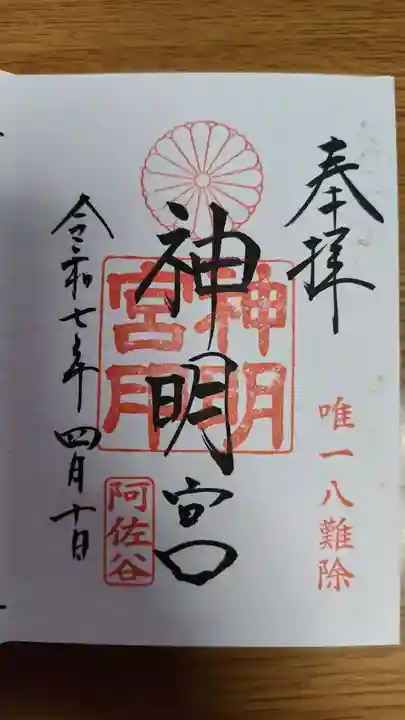 奉拝
唯一八難除
神明宮
神明宮印
阿佐谷
令和七年四月十日